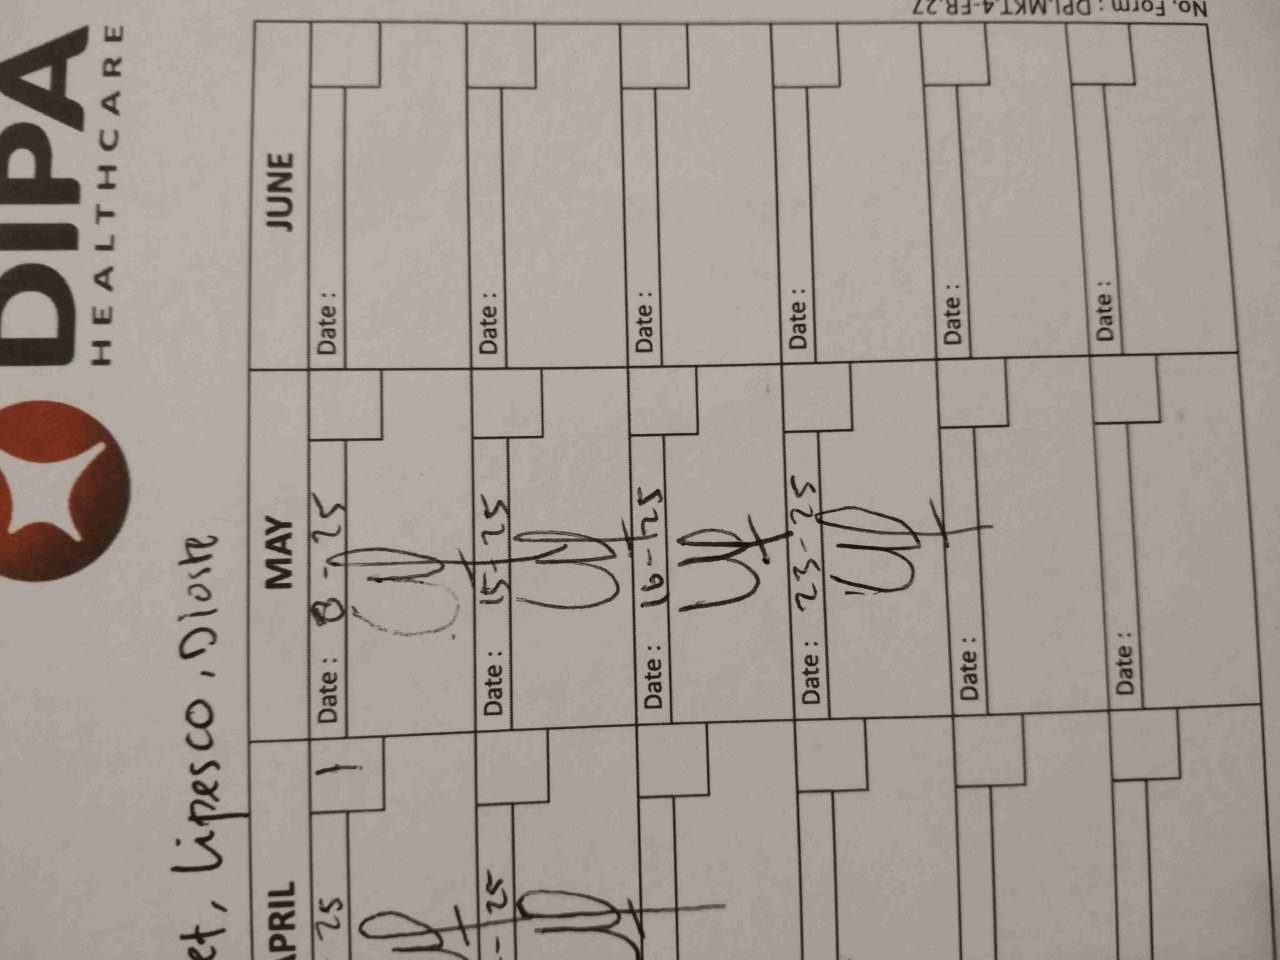 DIPA
HEALTHCARE
et, Lipesco, Dioste
APRIL MAY JUNE
25 1 Date : 8-25 Date :
- 25 Date : 15-25 Date :
Date : 16-25 Date :
Date : 23-25 Date :
Date : Date :
Date : Date :
No. Form : DPI.MKT.4-FR.27